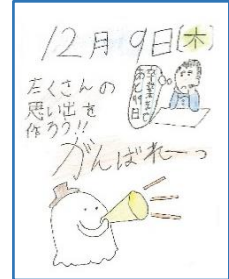 12月9日(木)
たくさんの
思い出を
作ろう!!
卒業まで
あと99日
がんばれーっ